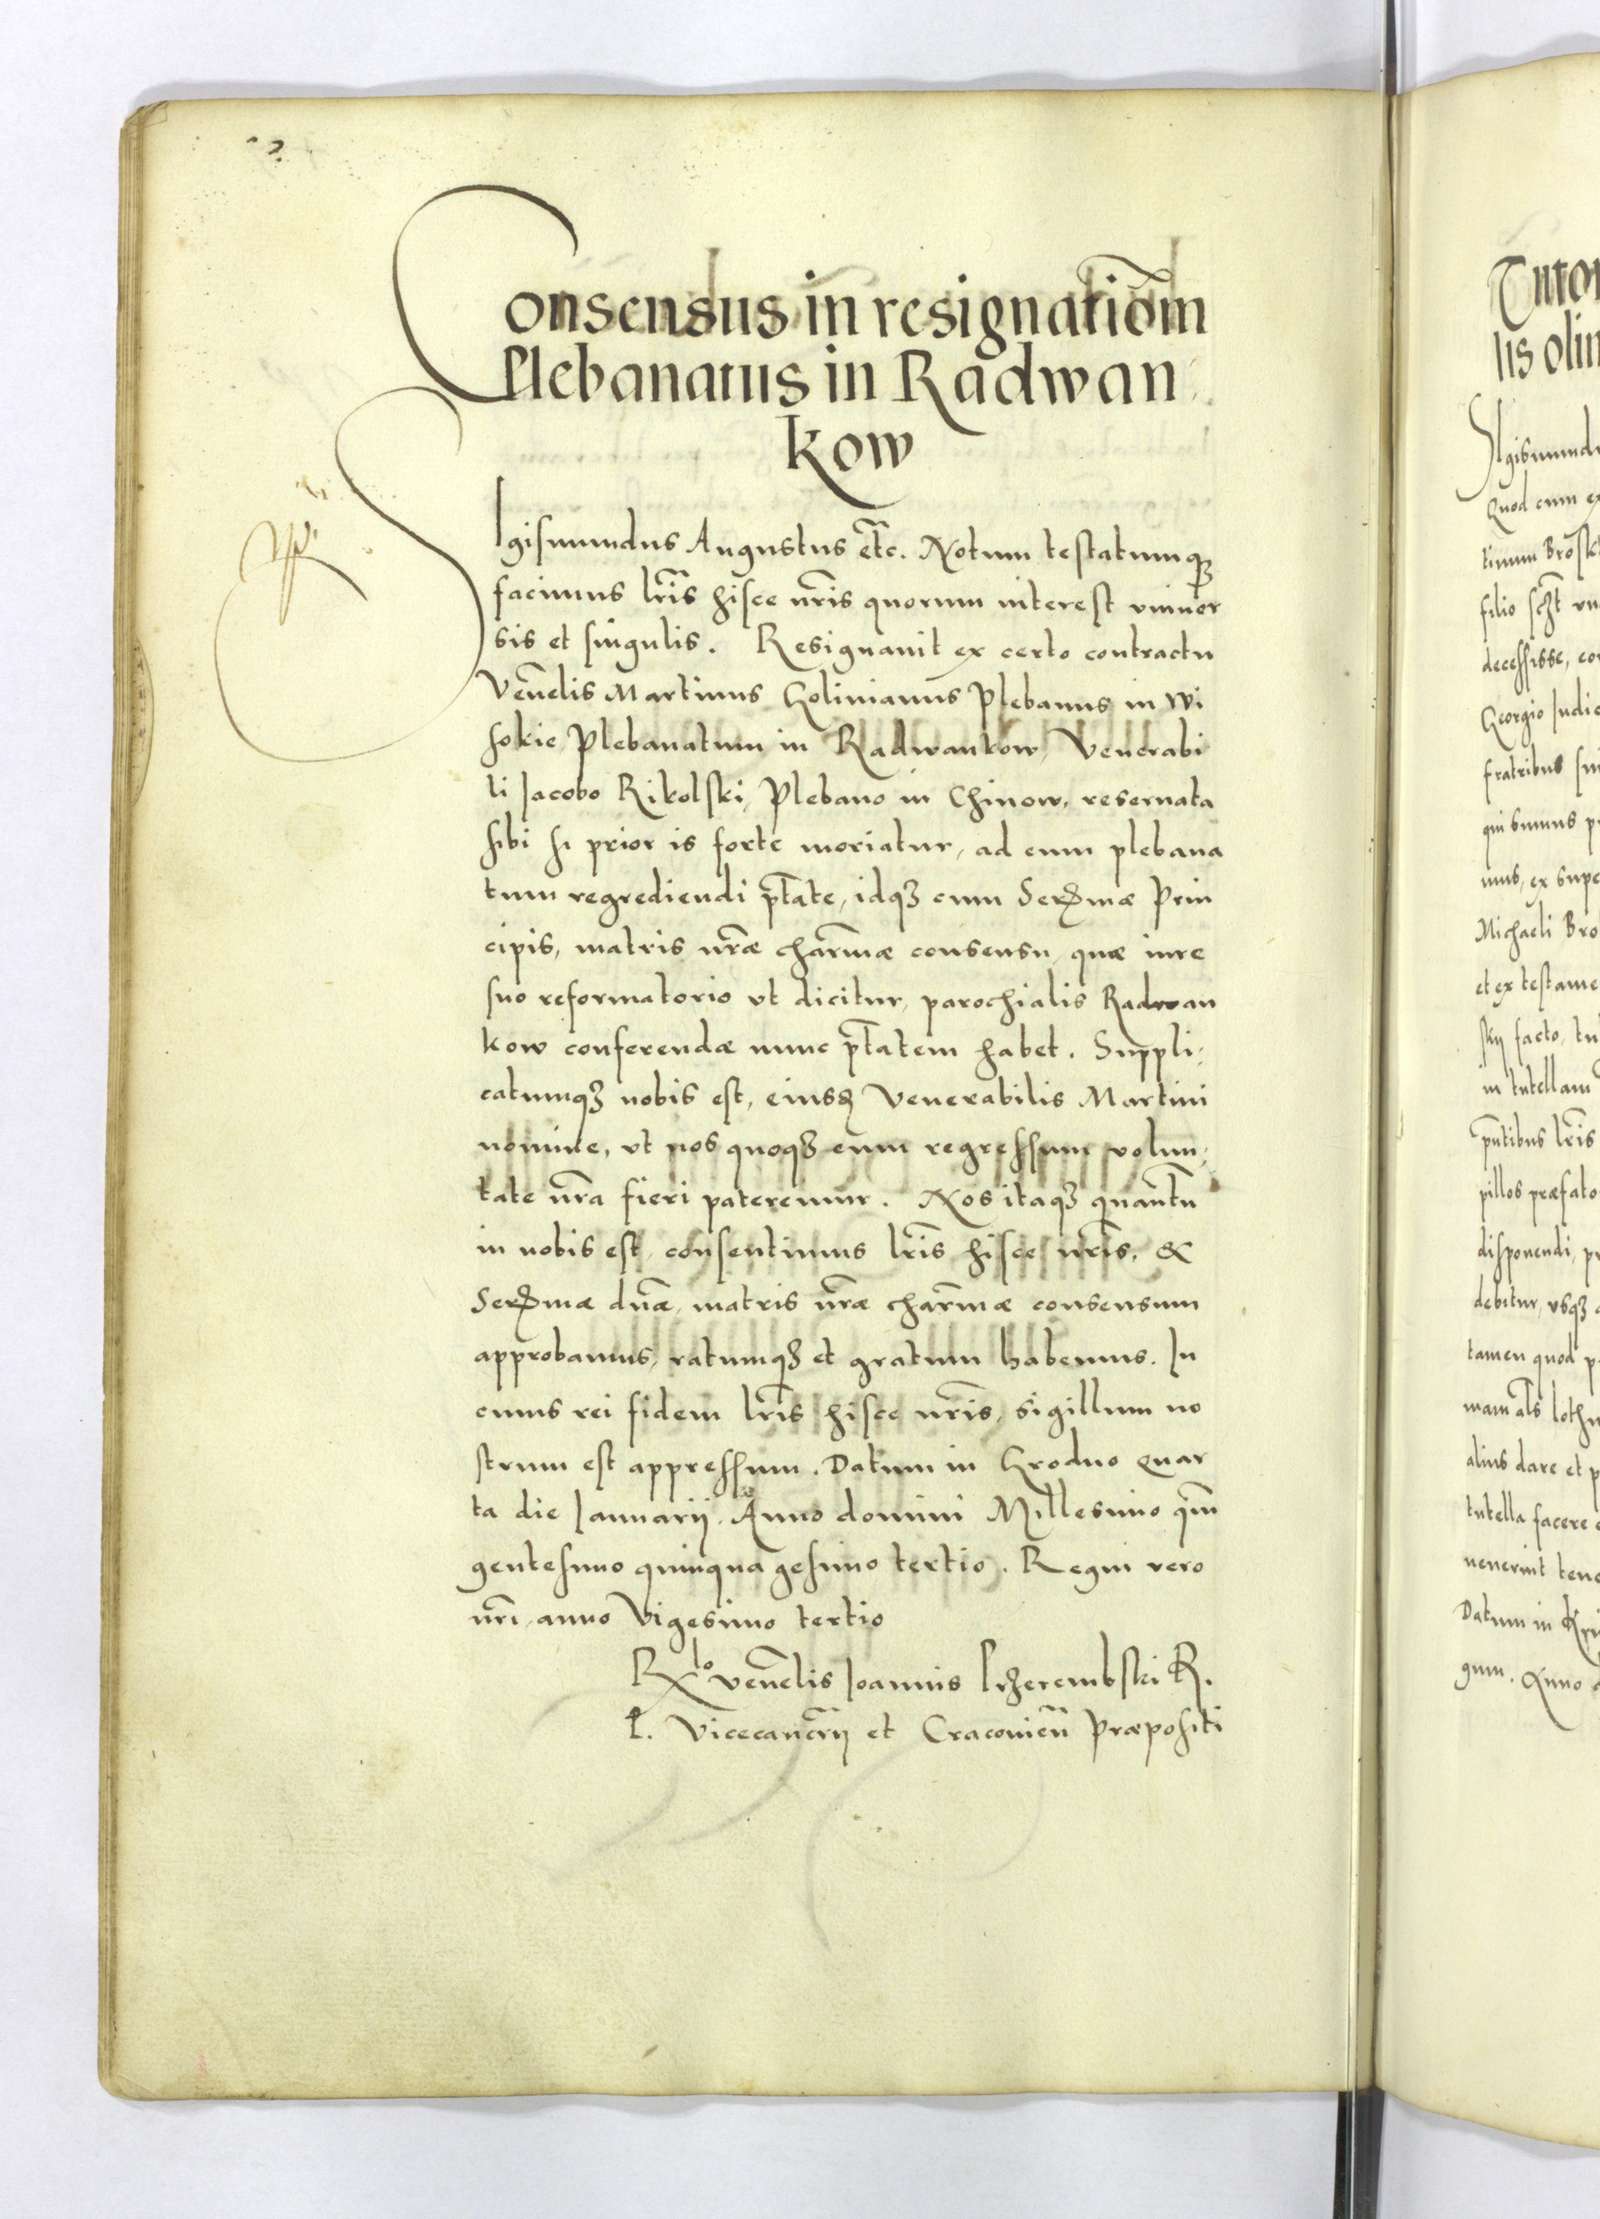 Consensus in resignatiõm
Plebanatus in Radwan
kow
Sigismundus Augustus etc̃. Notum testatumqꝫ
facimus lr̃is hisce nr̃is quorum interest vniuer
sis et singulis. Resignauit ex certo contractu
Ven̄elis Martinus Golinianus Plebanus in Wi
sokie Plebanatum in Radwankow, Venerabi
li Jacobo Rikolski, Plebano in Chinow, reseruata
sibi si prior is forte moriatur, ad eum plebana
tum regrediendi ptãte, idqꝫ cum Serꝰmæ Prin
cipis, matris nr̃æ char̃mæ consensu, quæ iure
suo reformatorio vt dicitur, parochialis Radwan
kow conferendæ nunc ptãtem habet. Suppli-
catumqꝫ nobis est, eiusꝫ Venerabilis Martini
nomine, vt nos quoqꝫ eum regressum volun-
tate nr̃a fieri pateremur. Nos itaqꝫ quantũ
in nobis est, consentimus lr̃is hisce nr̃is, &
Serꝰmæ dnæ̃, matris nr̃æ char̃mæ consensum
approbamus, ratumqꝫ et gratum habemus. In
cuius rei fidem lr̃is hisce nr̃is, sigillum no
strum est appressum. Datum in Grodno Quar
ta die Januarij. Anno domini Millesimo qim̃
gentesimo quinquagesimo tertio. Regni vero
nr̃i anno Vigesimo tertio
Rlo ven̄elis Joannis Przerembski R.
P. Vicecancr̃ij et Cracovien̄ Præpositi
Tutor
lis olim
Sigismundu
Quod cum ex
timum Brosk
filio
decessisse, co
Georgio Judic
fratribus sui
qui bonnus p
mus, ex supe
Michaeli Bro
et ex testame
skij facto, tu
in tutellam
pñtibus lr̃is
pillos præfato
disponendi, pr
debitur, vsqꝫ
tamen quod p
mam als̃ loth
alius dare et p
tutella facere
uenerint tene
Datum in Kr
gum. Anno